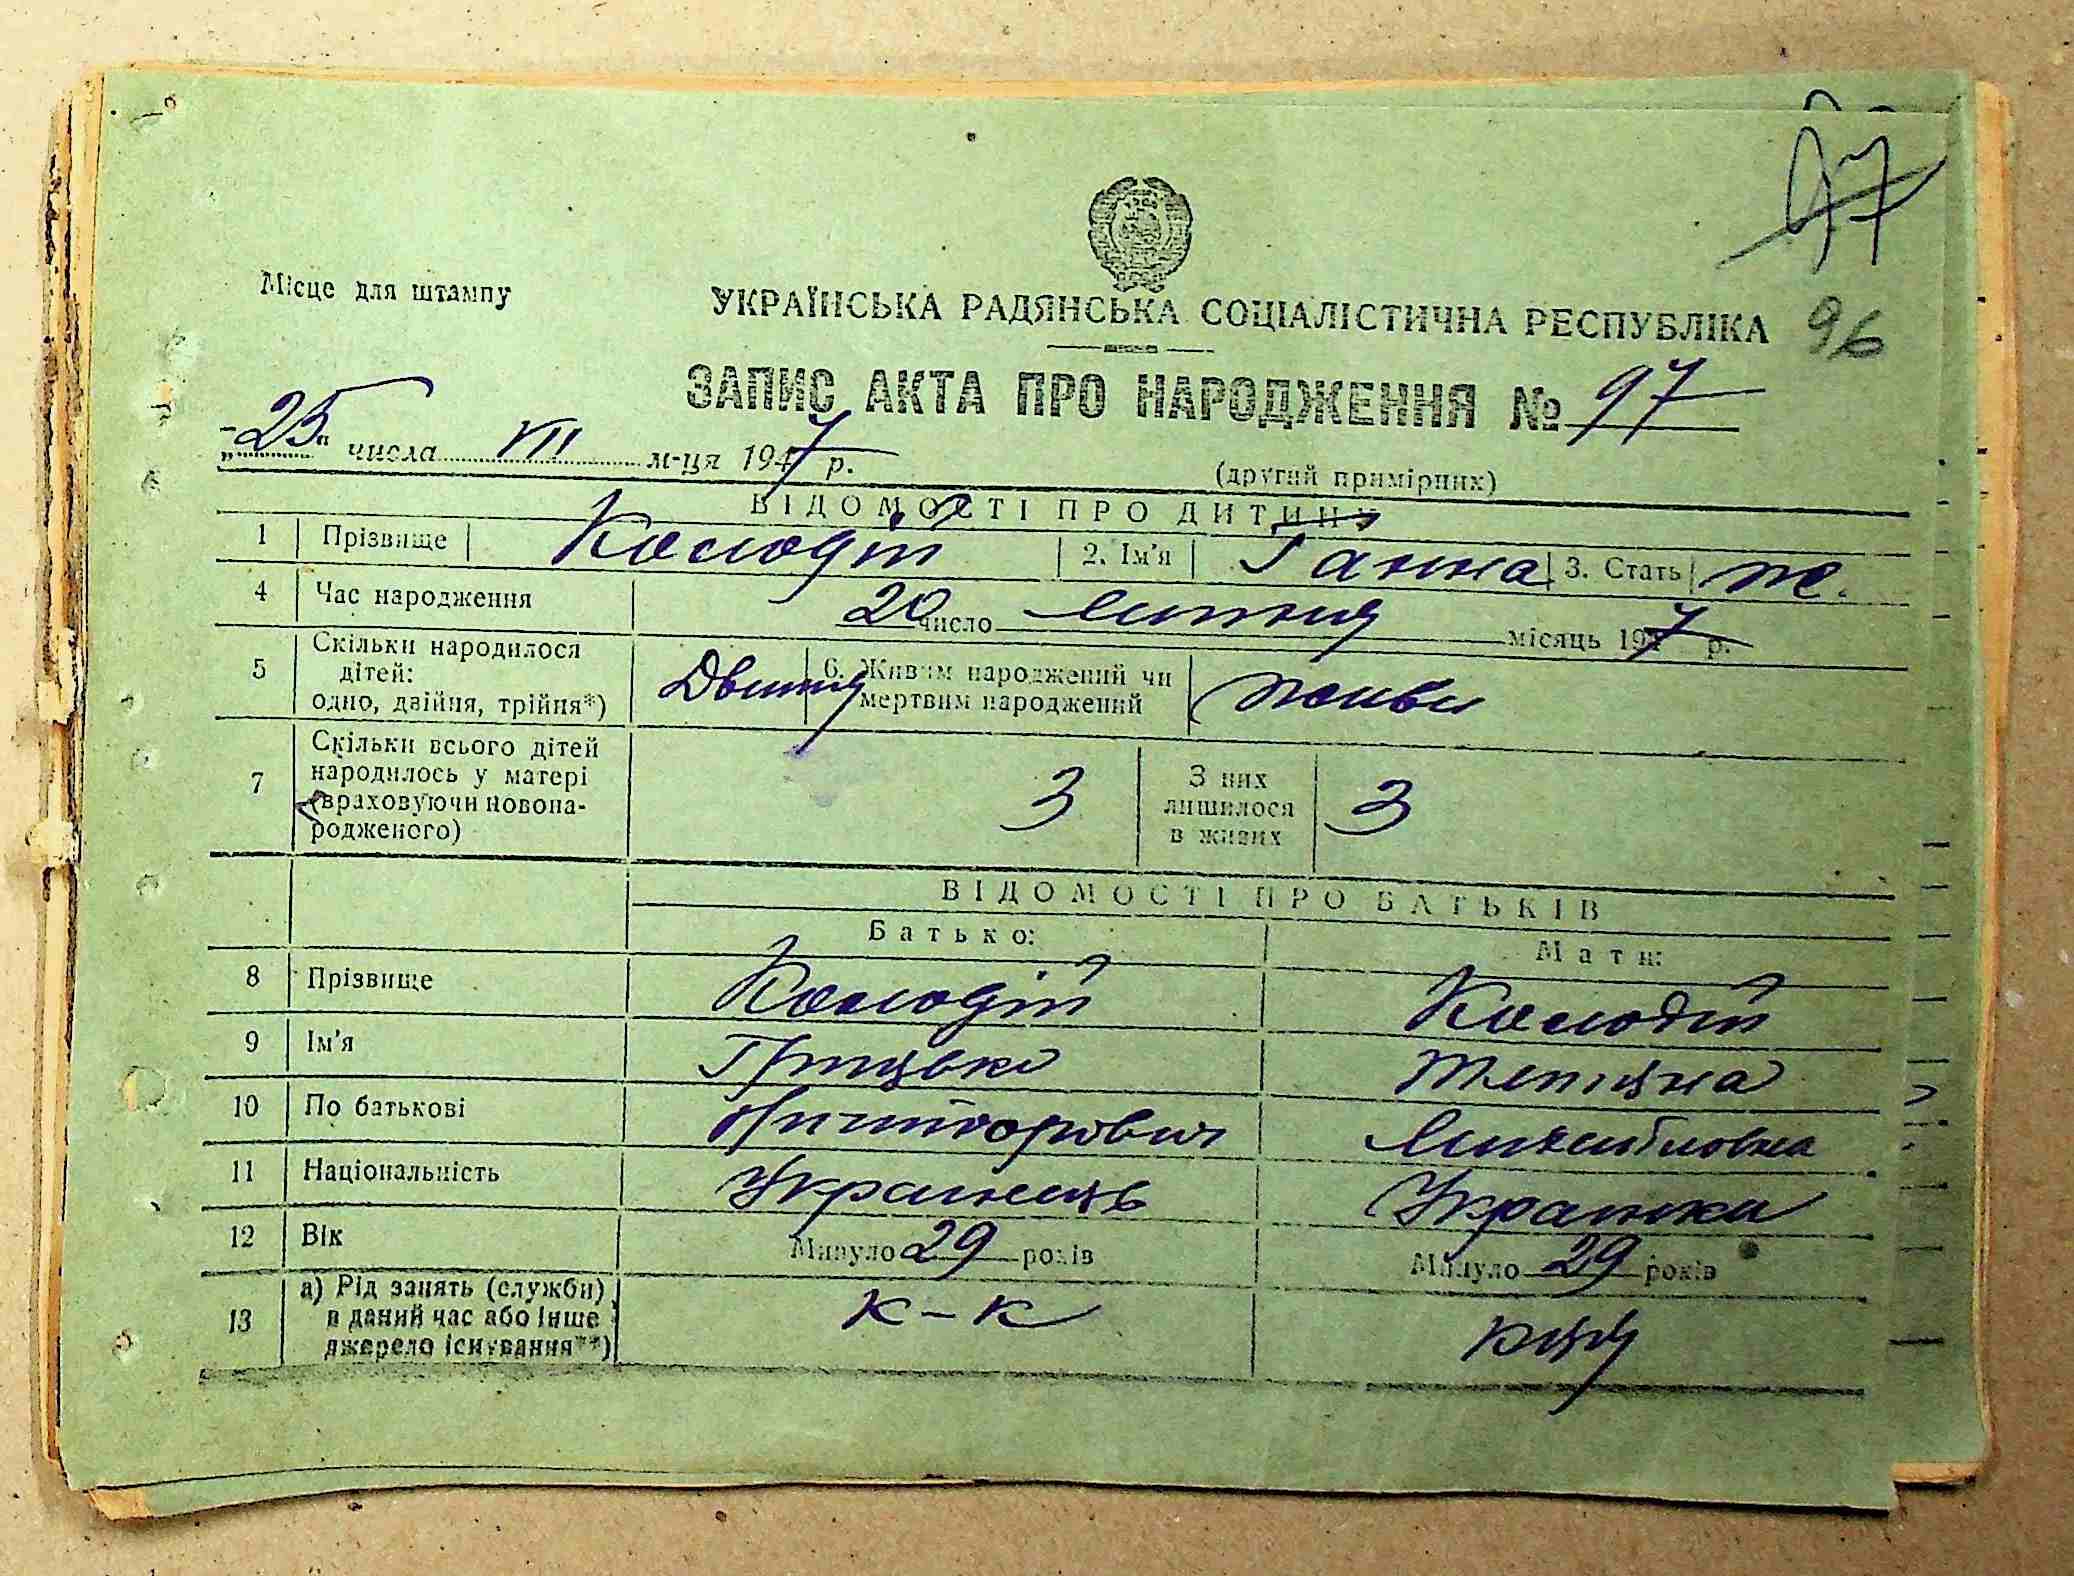 97
Місце для штампу
УКРАЇНСЬКА РАДЯНСЬКА СОЦІАЛІСТИЧНА РЕСПУБЛІКА
96
ЗАПИС АКТА ПРО НАРОДЖЕННЯ № 97
„25“ числа VII м-ця 1947 р.
(другий примірник)
ВІДОМОСТІ ПРО ДИТИНУ
1 Прізвище Колодій 2. Ім'я Ганна 3. Стать ж.
4 Час народження 20 число липня місяць 1947 р.
5 Скільки народилося дітей: одно, двійня, трійня*) Двійня 6. Живим народжений чи мертвим народжений живи
7 Скільки всього дітей народилось у матері (враховуючи новонародженого) 3 З них лишилося в живих 3
ВІДОМОСТІ ПРО БАТЬКІВ
Батько: Мати:
8 Прізвище Колодій Колодій
9 Ім'я Грицько
10 По батькові Михайловна
11 Національність Українець Українка
12 Вік Минуло 29 років Минуло 29 років
13 а) Рід занять (служби) в даний час або інше джерело існування**) к-к